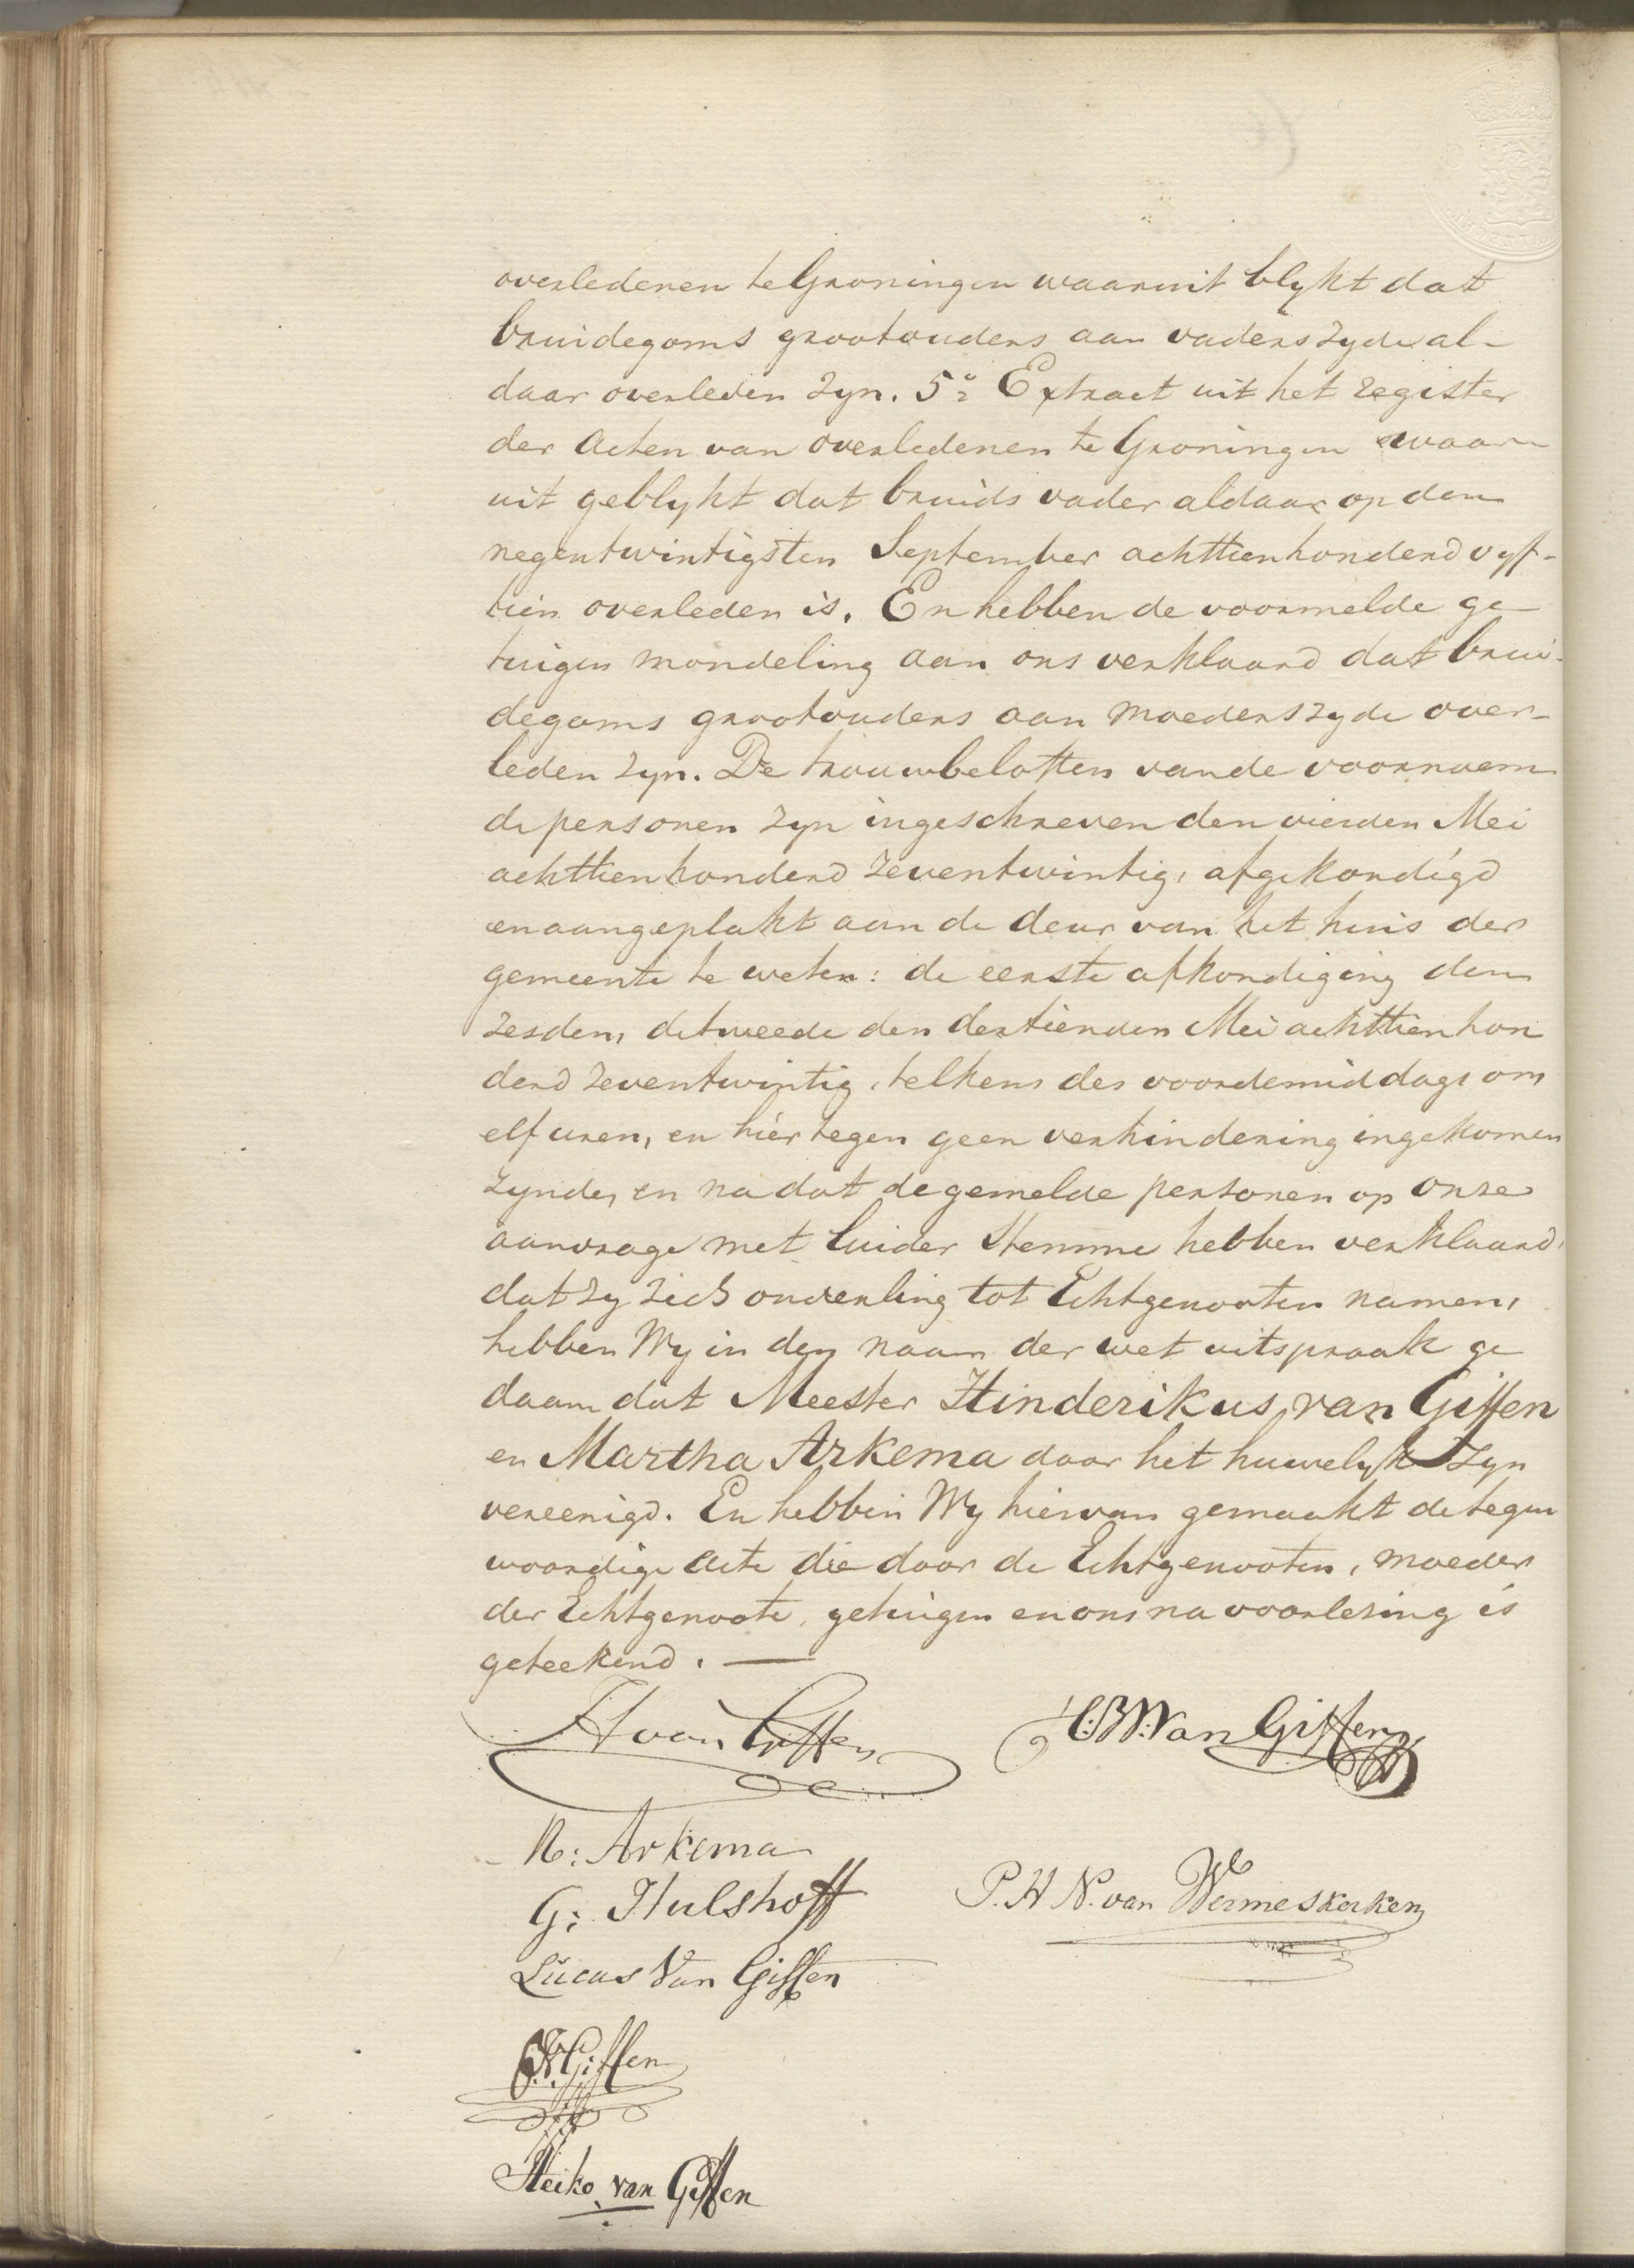 overledenen te Groningen waaruit blykt dat
bruidegoms grootouders aan vaderszyde al-
daar overleden zyn. 5o Extract uit het register
der Acten van overledenen te Groningen waar
uit geblykt dat bruids vader aldaar op den
negentwintigsten September achttienhonderd vyf-
tien overleden is. En hebben de voormelde ge
tuigen mondeling aan ons verklaard dat brui-
degoms grootouders aan moederszyde over-
leden zyn. De trouwbeloften van de voornoem
de personen zyn ingeschreven den vierden Mei
achttienhonderd zeventwintig, afgekondigd
en aangeplakt aan de deur van het huis der
gemeente te weten: de eerste afkondiging den
zesden, de tweede den dertienden Mei achttienhon
derd zeventwintig, telkens des voordemiddags om
elf uren, en hiertegen geen verhindering ingekomen
zynde, en na dat de gemelde personen op onze
aanvrage met luider Stemme hebben verklaard,
dat zy zich onderling tot Echtgenooten namen,
hebben Wy in den naam der wet uitspraak ge
daan dat Meester Hinderikus van Giffen
en Martha Arkema door het huwelyk zyn
vereenigd. En hebben Wy hiervan gemaakt de tegen
woordige acte die door de Echtgenooten, moeder
der Echtgenoote, getuigen en ons na voorlezing is
geteekend. —
H van Giffen
H:B:W:Van Giffen
M: Arkema
G: Hulshoff
P. H N. van Wermeskerken
Lucas Van Giffen
V Giffen
Heiko van Giffen